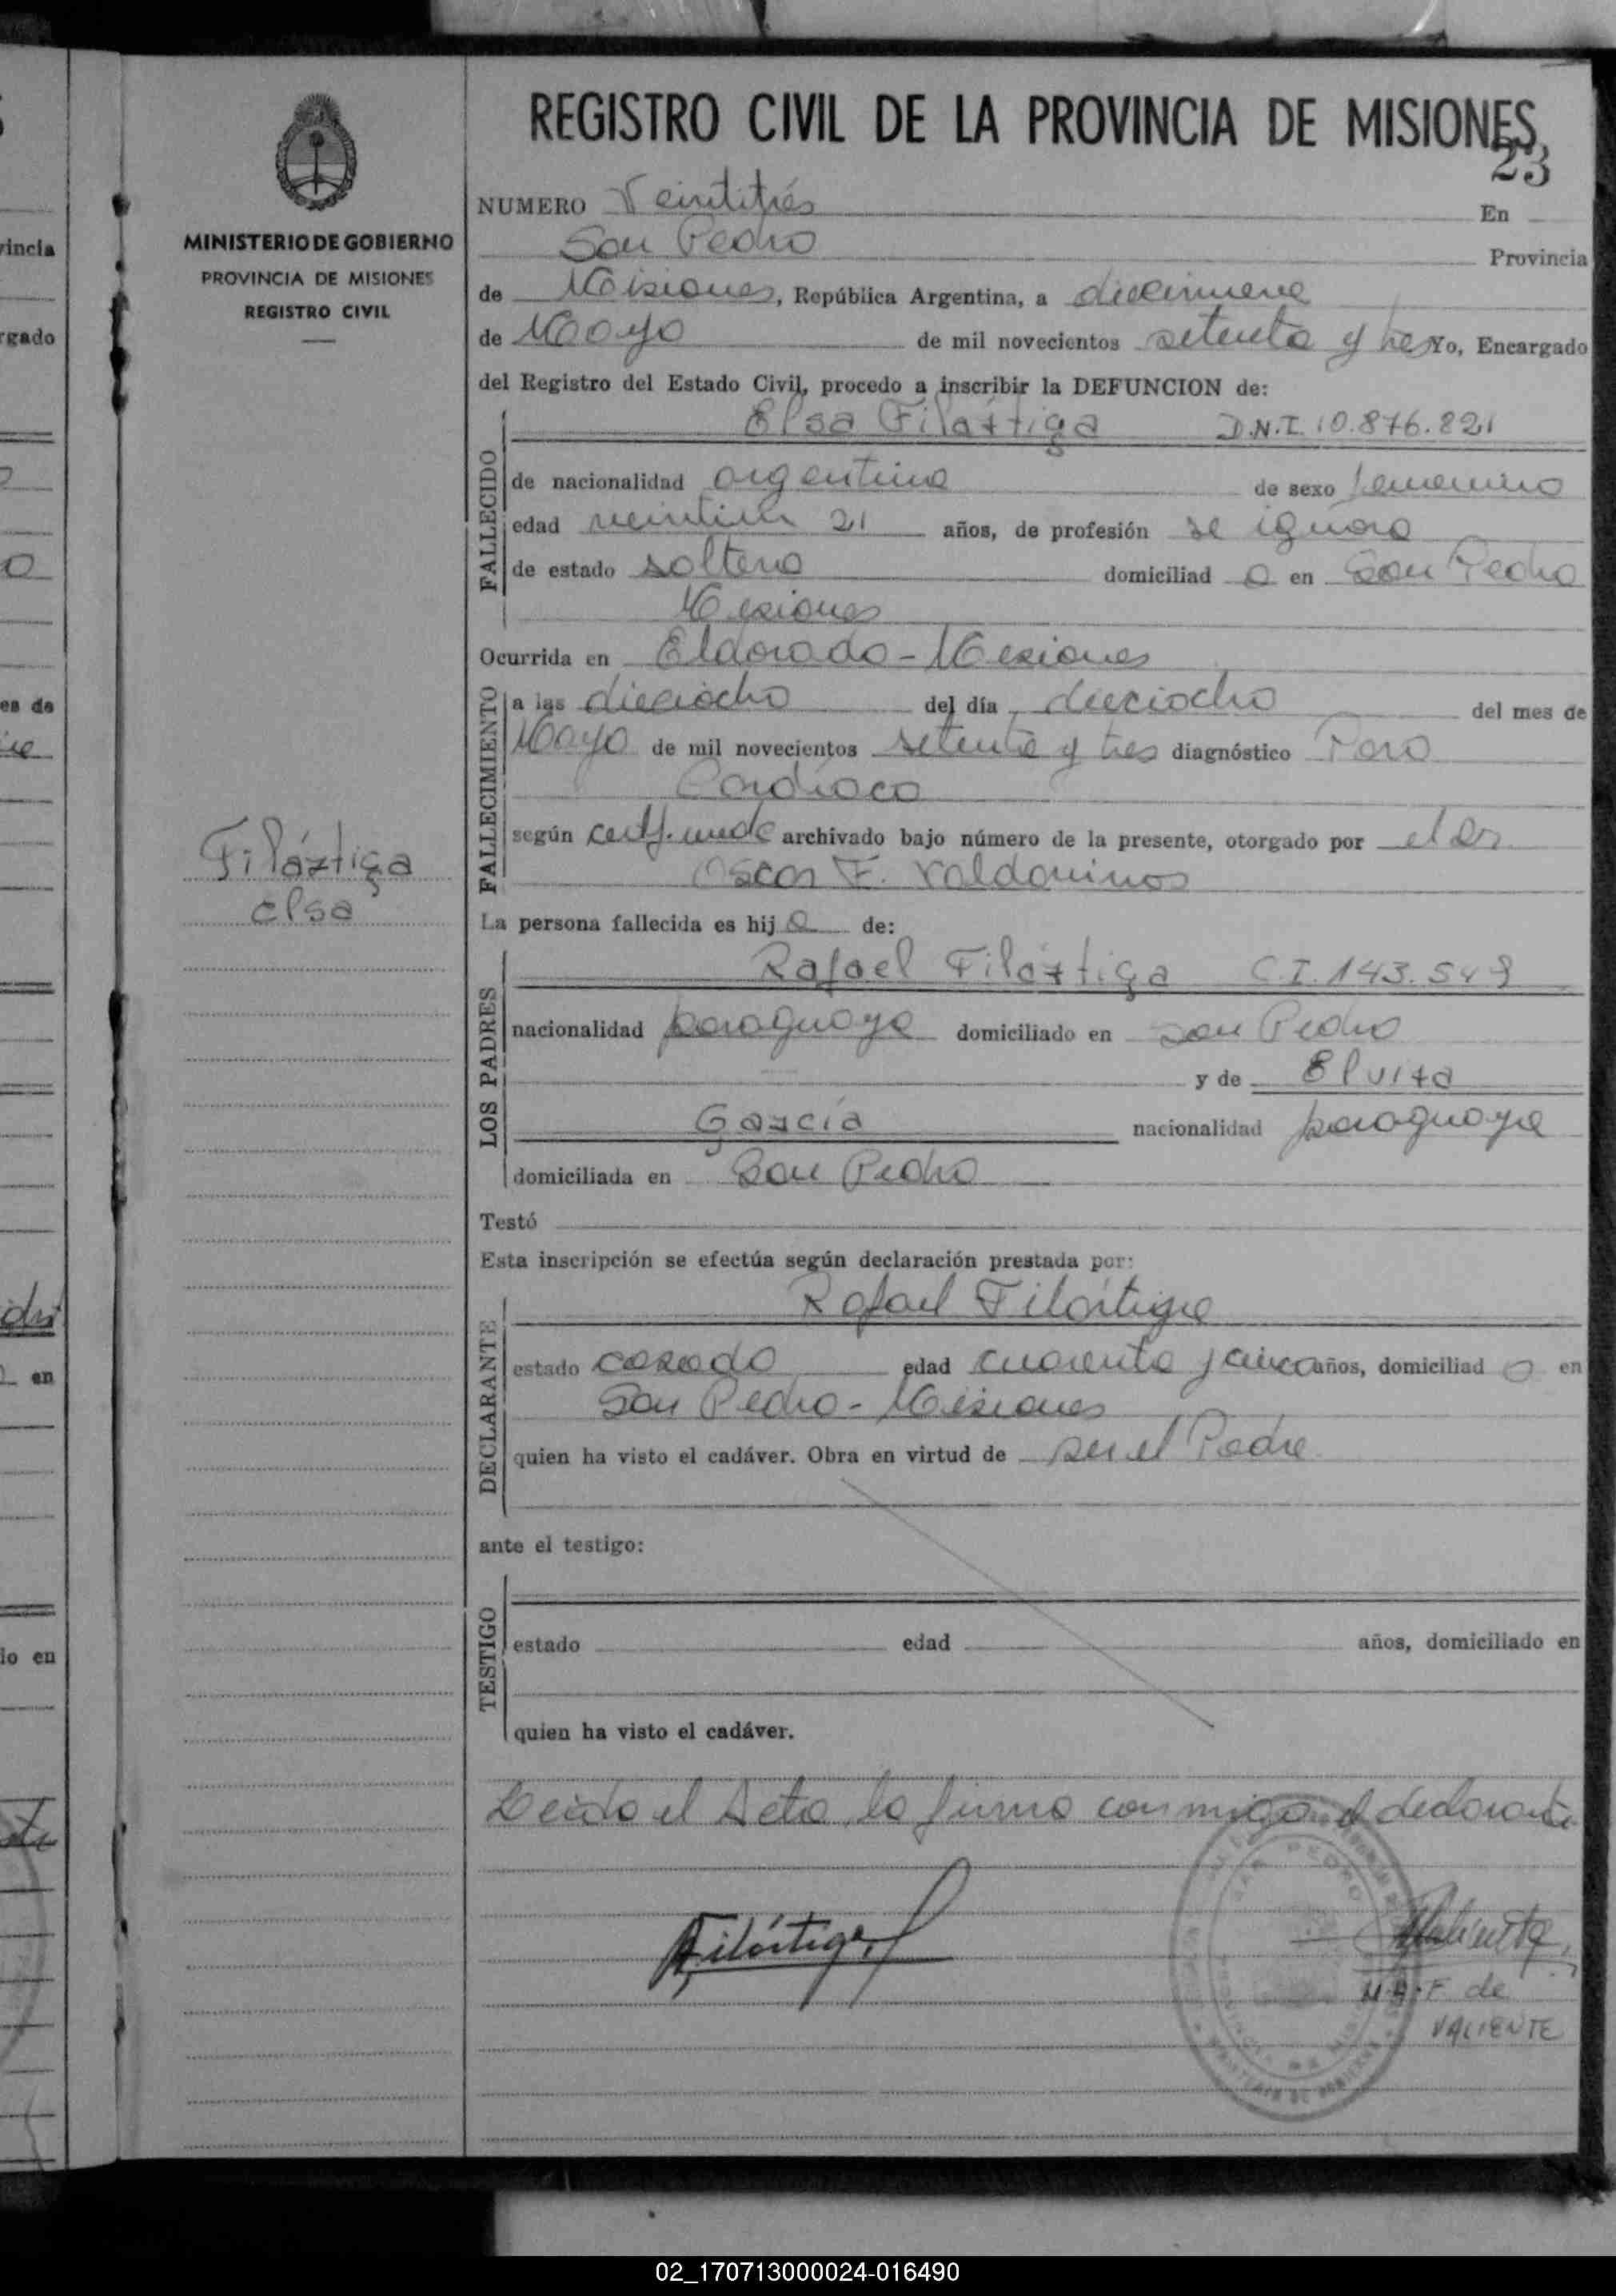 REGISTRO CIVIL DE LA PROVINCIA DE MISIONES
23
MINISTERIO DE GOBIERNO
PROVINCIA DE MISIONES
REGISTRO CIVIL
Filártiga
Elsa
NUMERO Veintitrés En
San Pedro Provincia
de Misiones, República Argentina, a diecinueve
de Mayo de mil novecientos setenta y tres Yo, Encargado
del Registro del Estado Civil, procedo a inscribir la DEFUNCION de:
Elsa Filártiga D.N.I. 10.876.821
FALLECIDO
de nacionalidad argentina de sexo femenino
edad veintiun 21 años, de profesión se ignora
de estado soltera domiciliad a en San Pedro
Misiones
Ocurrida en Eldorado - Misiones
FALLECIMIENTO
a las dieciocho del día dieciocho del mes de
Mayo de mil novecientos setenta y tres diagnóstico Paro
Cardíaco
según certf. medc archivado bajo número de la presente, otorgado por el Dr
Oscar F. Valdovinos
La persona fallecida es hij a de:
LOS PADRES
Rafael Filártiga C.I. 143.549
nacionalidad paraguaya domiciliado en San Pedro
y de Elvira
García nacionalidad paraguaya
domiciliada en San Pedro
Testó
Esta inscripción se efectúa según declaración prestada por:
DECLARANTE
Rafael Filártiga
estado casado edad cuarenta y cinco años, domiciliad o en
San Pedro - Misiones
quien ha visto el cadáver. Obra en virtud de ser el Padre
ante el testigo:
TESTIGO
estado edad años, domiciliado en
quien ha visto el cadáver.
Leida el Acta, la firma conmigo el declarante
Filártiga
SAN PEDRO
de Valiente
M.A.F de
VALIENTE
02_170713000024-016490